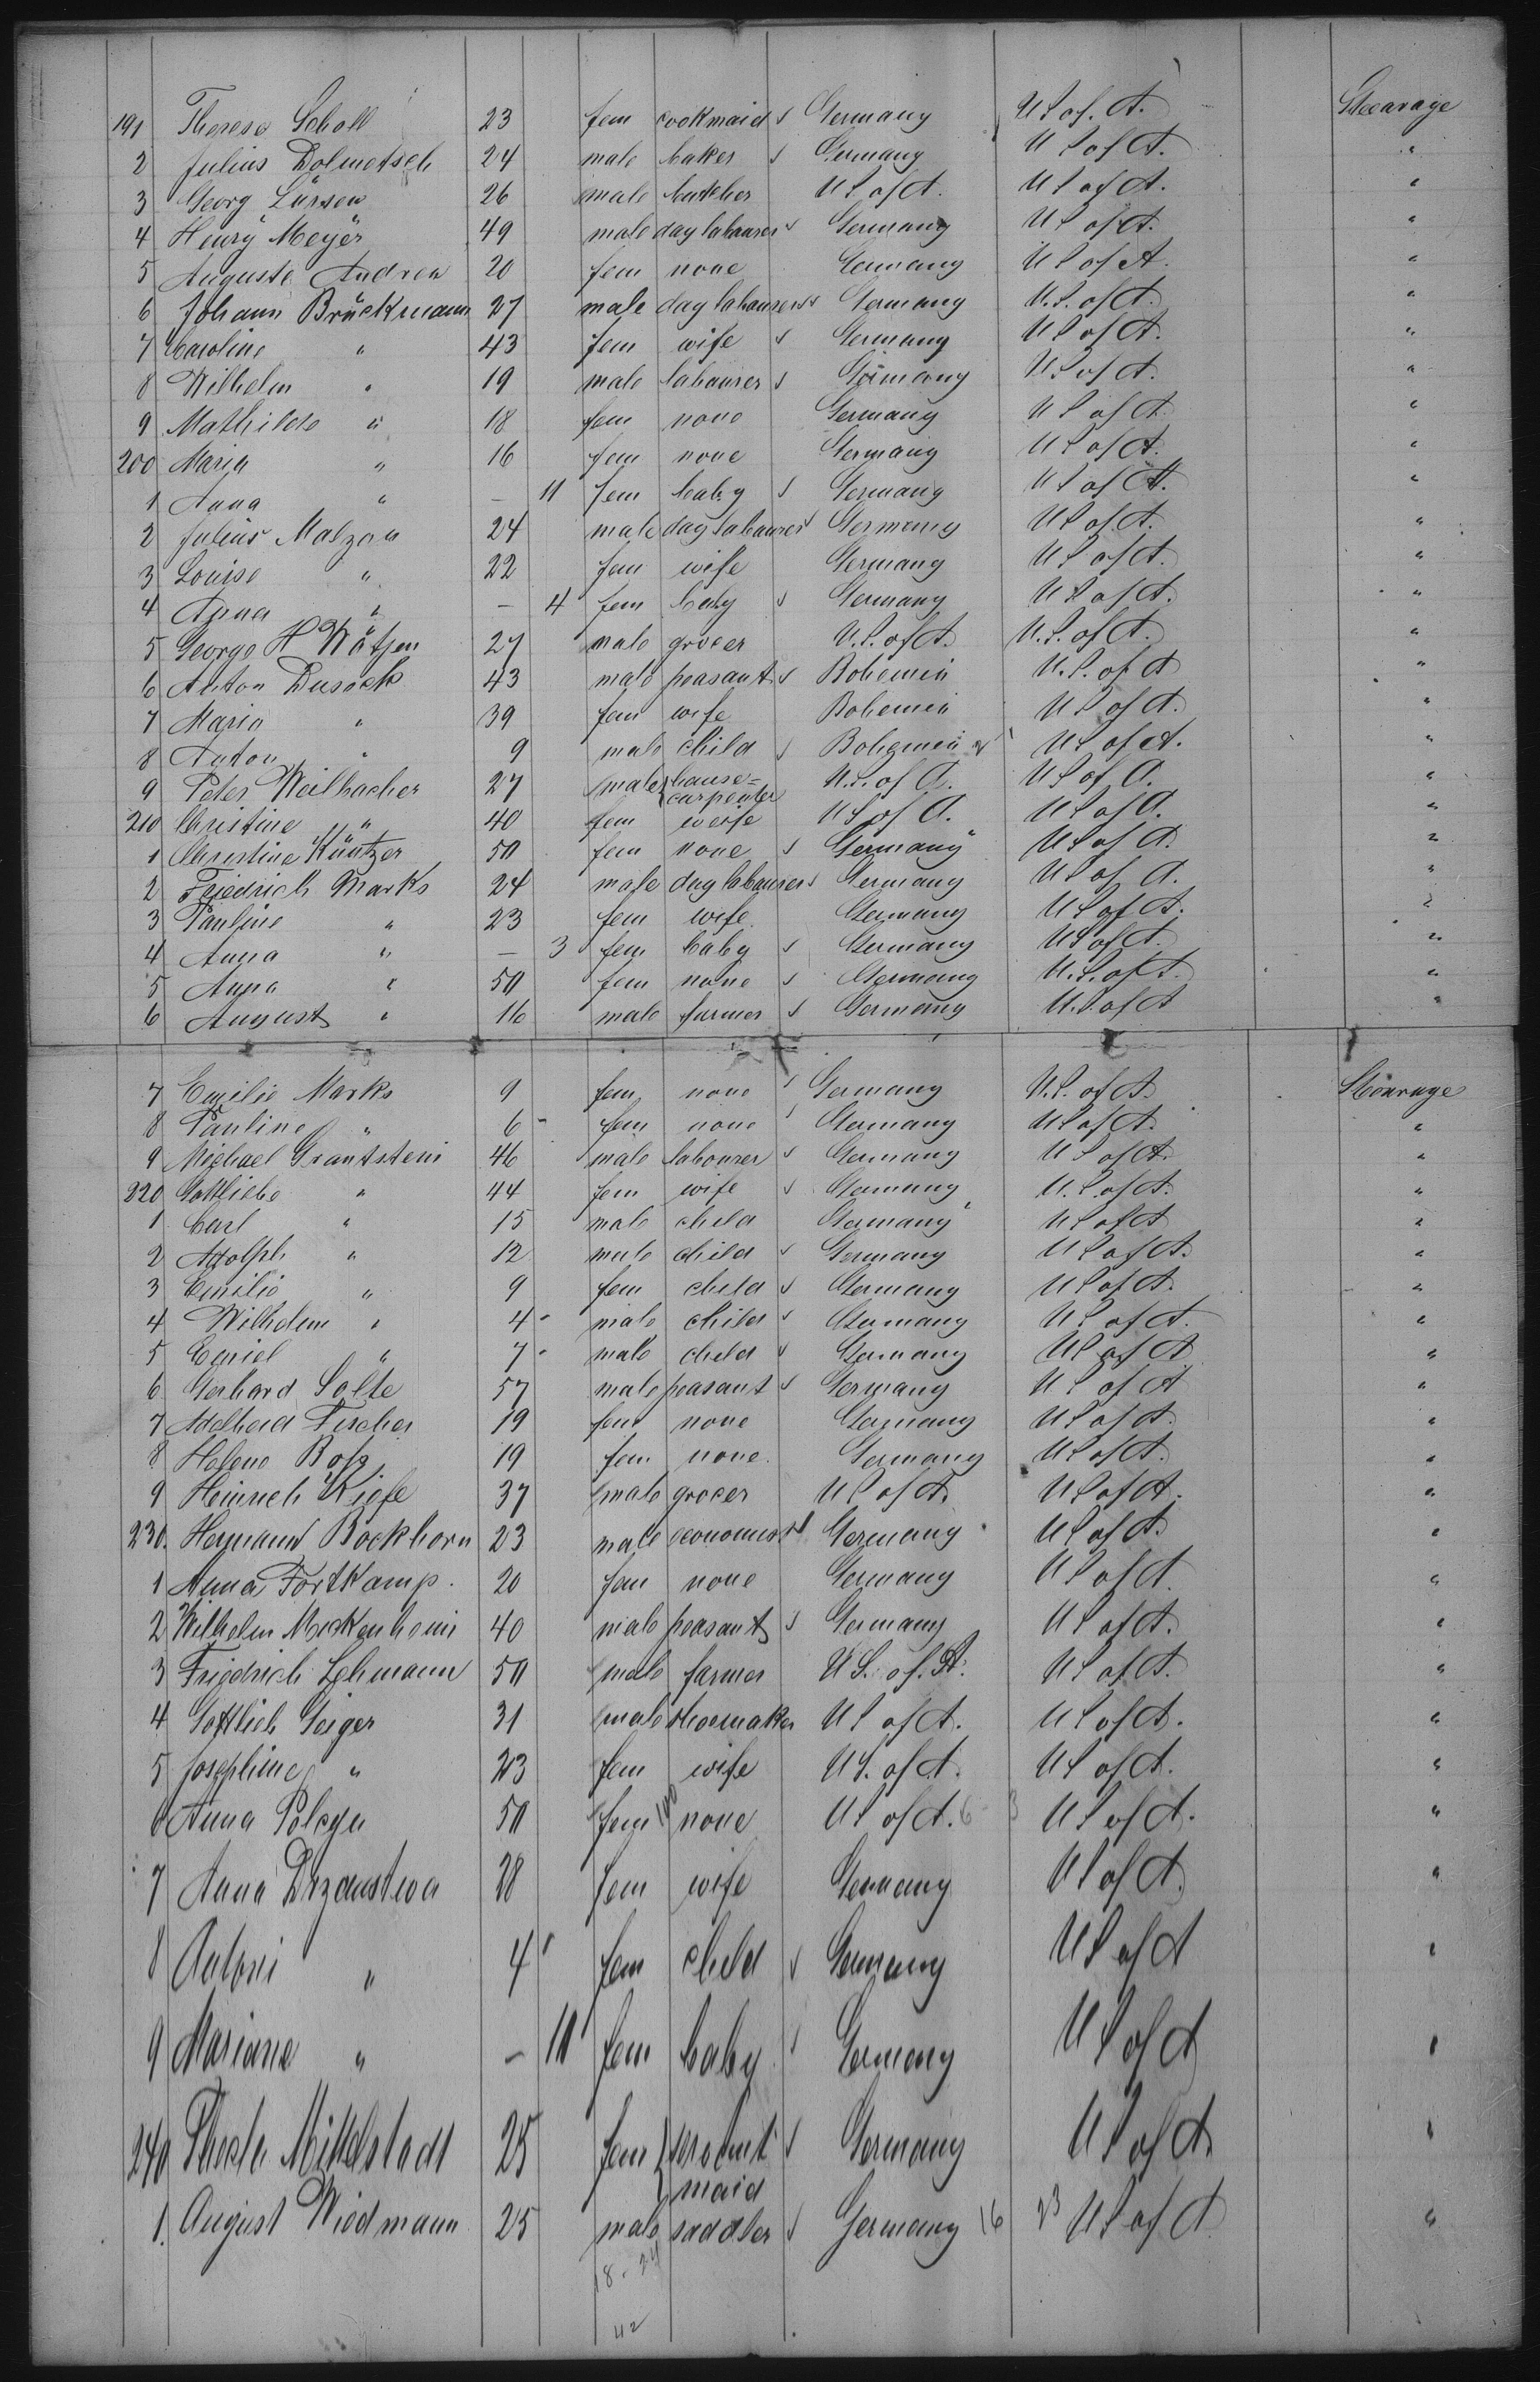 191 Therese Scholl 23 fem cookmaid s Germany U S of. A. Stearage
2 Julius Dolmetsch 24 male baker s Germany U S of A. "
3 Georg Lürsen 26 male butcher U S of A. U S of A. "
4 Henry Meyer 49 male day labaurer s Germany U S of A. "
5 Auguste Andrea 20 fem none Germany U S of A. "
6 Johann Brückmann 27 male day labaurer s Germany U. S. of A. "
7 Caroline " 43 fem wife s Germany U S of A. "
8 Wilhelm " 19 male labaurer s Germany U S of A. "
9 Mathilde " 18 fem none Germany U S of A. "
200 Maria " 16 fem none Germany U S of A. "
1 Anna " – 11 fem baby s Germany U S of A. "
2 Julius Malzan 24 male day labaurer s Germany U S of A. "
3 Louise " 22 fem wife Germany U S of A. "
4 Anna " – 4 fem baby s Germany U S of A. "
5 George H Wätjen 27 male grocer U. S. of A. U. S. of A. "
6 Anton Dusack 43 male peasant s Bohemia U. S. of A "
7 Maria " 39 fem wife Bohemia U S of A. "
8 Anton " 9 male child s Bohemia U S of A. "
9 Peter Weilbacher 27 male hause= carpenter U. S. of A. U S of A. "
210 Christine " 40 fem weife U S of A. U S of A. "
1 Christine Küntzer 50 fem none s Germany U S of A. "
2 Friedrich Marks 24 male day labaurer s Germany U S of A. "
3 Pauline " 23 fem wife Germany U S of A. "
4 Anna " – 3 fem baby s Germany U S of A. "
5 Anna " 50 fem none s Germany U. S. of A. "
6 August " 16 male farmer s Germany U. S. of A "
7 Emilie Marks 9 fem none s Germany U. S. of A. Stearage
8 Pauline " 6 fem none s Germany U S of A. "
9 Michael Grantstein 46 male labourer s Germany U S of A. "
220 Gottliebe " 44 fem wife s Germany U. S. of A. "
1 Carl " 15 male child Germany U S of A "
2 Adolph " 12 male child s Germany U S of A. "
3 Emilie " 9 fem child s Germany U S of A. "
4 Wilhelm " 4 male child s Germany U S of A. "
5 " 7 male child s Germany U S of A "
6 Gerhard Solte 57 male peasant s Germany U S of A "
7 Adelheid Fischer 19 fem none Germany U S of A. "
8 Helene 19 fem none. Germany U S of A. "
9 Heinrich Kiefe 37 male grocer U S of A. U S of A. "
230. Hermann Bockhorn 23 male economist s Germany U S of A. "
1 Anna Fortkamp. 20 fem none Germany U S of A. "
2 Wilhelm Meckenheim 40 male peasant s Germany U S of A. "
3 Friedrich Lehmann 50 male farmer U S. of. A. U S of A. "
4 Gottlieb Geiger 31 male shoemaker U S of A. U S of A. "
5 Josephine " 23 fem wife U S. of A. U S of A. "
6 Anna Polcyn 50 fem none U S of A. U S of A. "
7 Anna 28 fem wife Germany U S of A. "
8 Antoni " 4 fem child s Germany U S of A "
9 Mariane " – 11 fem baby s Germany U S of A "
240 Thekla Mittelstadt 25 fem servant maid s Germany U S of A. "
1. August Wiedmann 25 male saddler s Germany 16 23 U S of A. "
18. 24
42